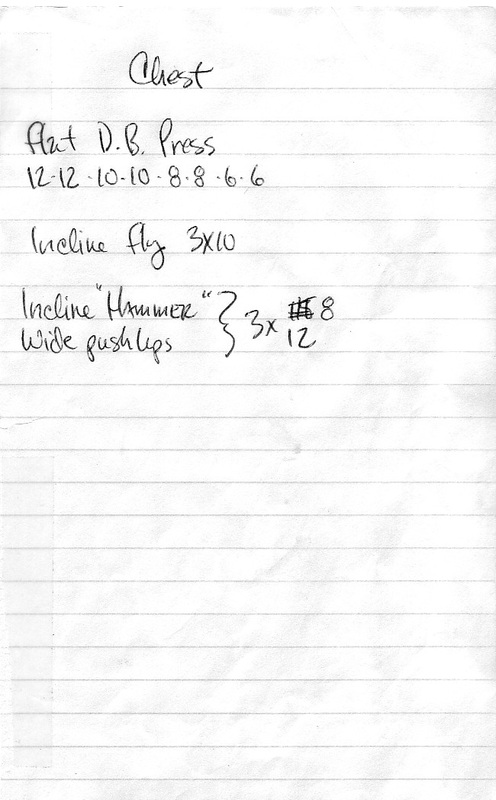 Chest
flat D.B. Press
12-12-10-10-8-8-6-6
Incline fly 3x10
Incline "HAMMER" } 3x 8
Wide pushups 12